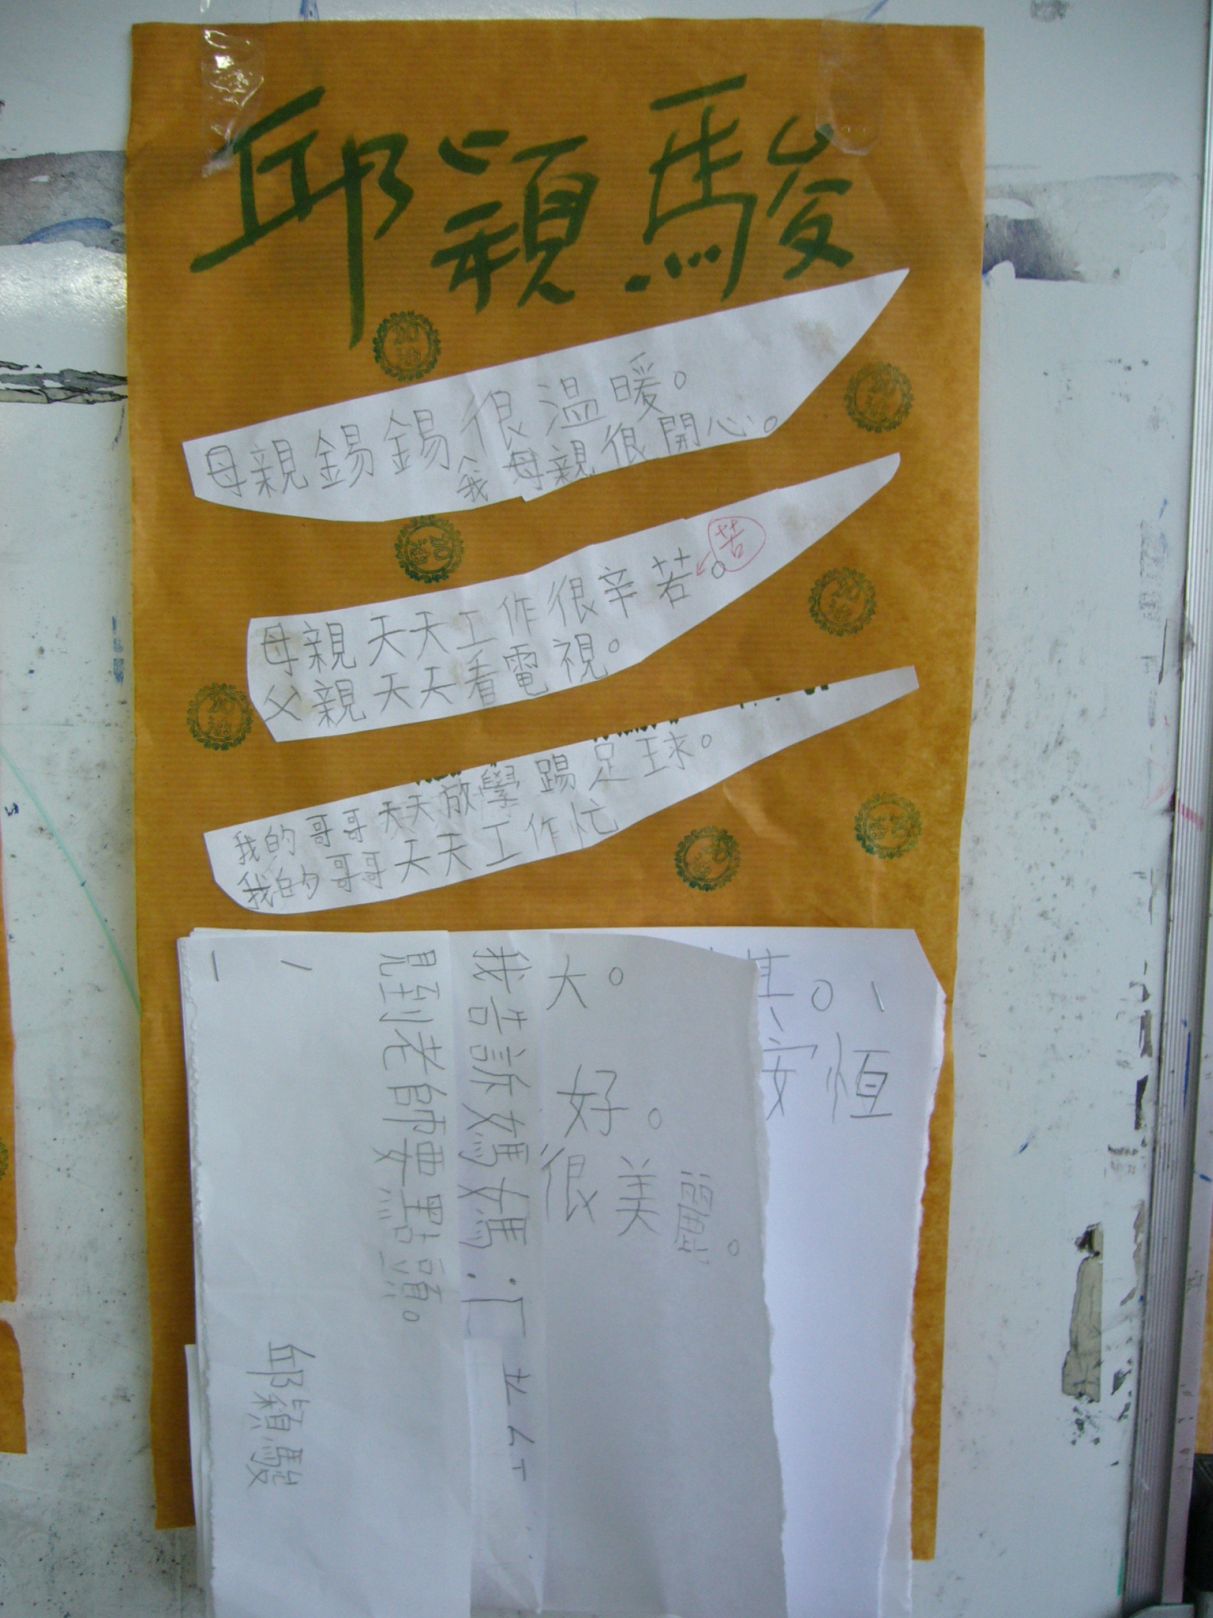 邱穎駿
母親錫錫很溫暖。
我母親很開心。
母親天天工作很辛若。
苦
父親天天看電視。
我的哥哥天天放學踢足球。
我的哥哥天天工作忙
大。
好。
很美
恆
安
我告訴媽媽：「
老師要點頭。
邱穎駿